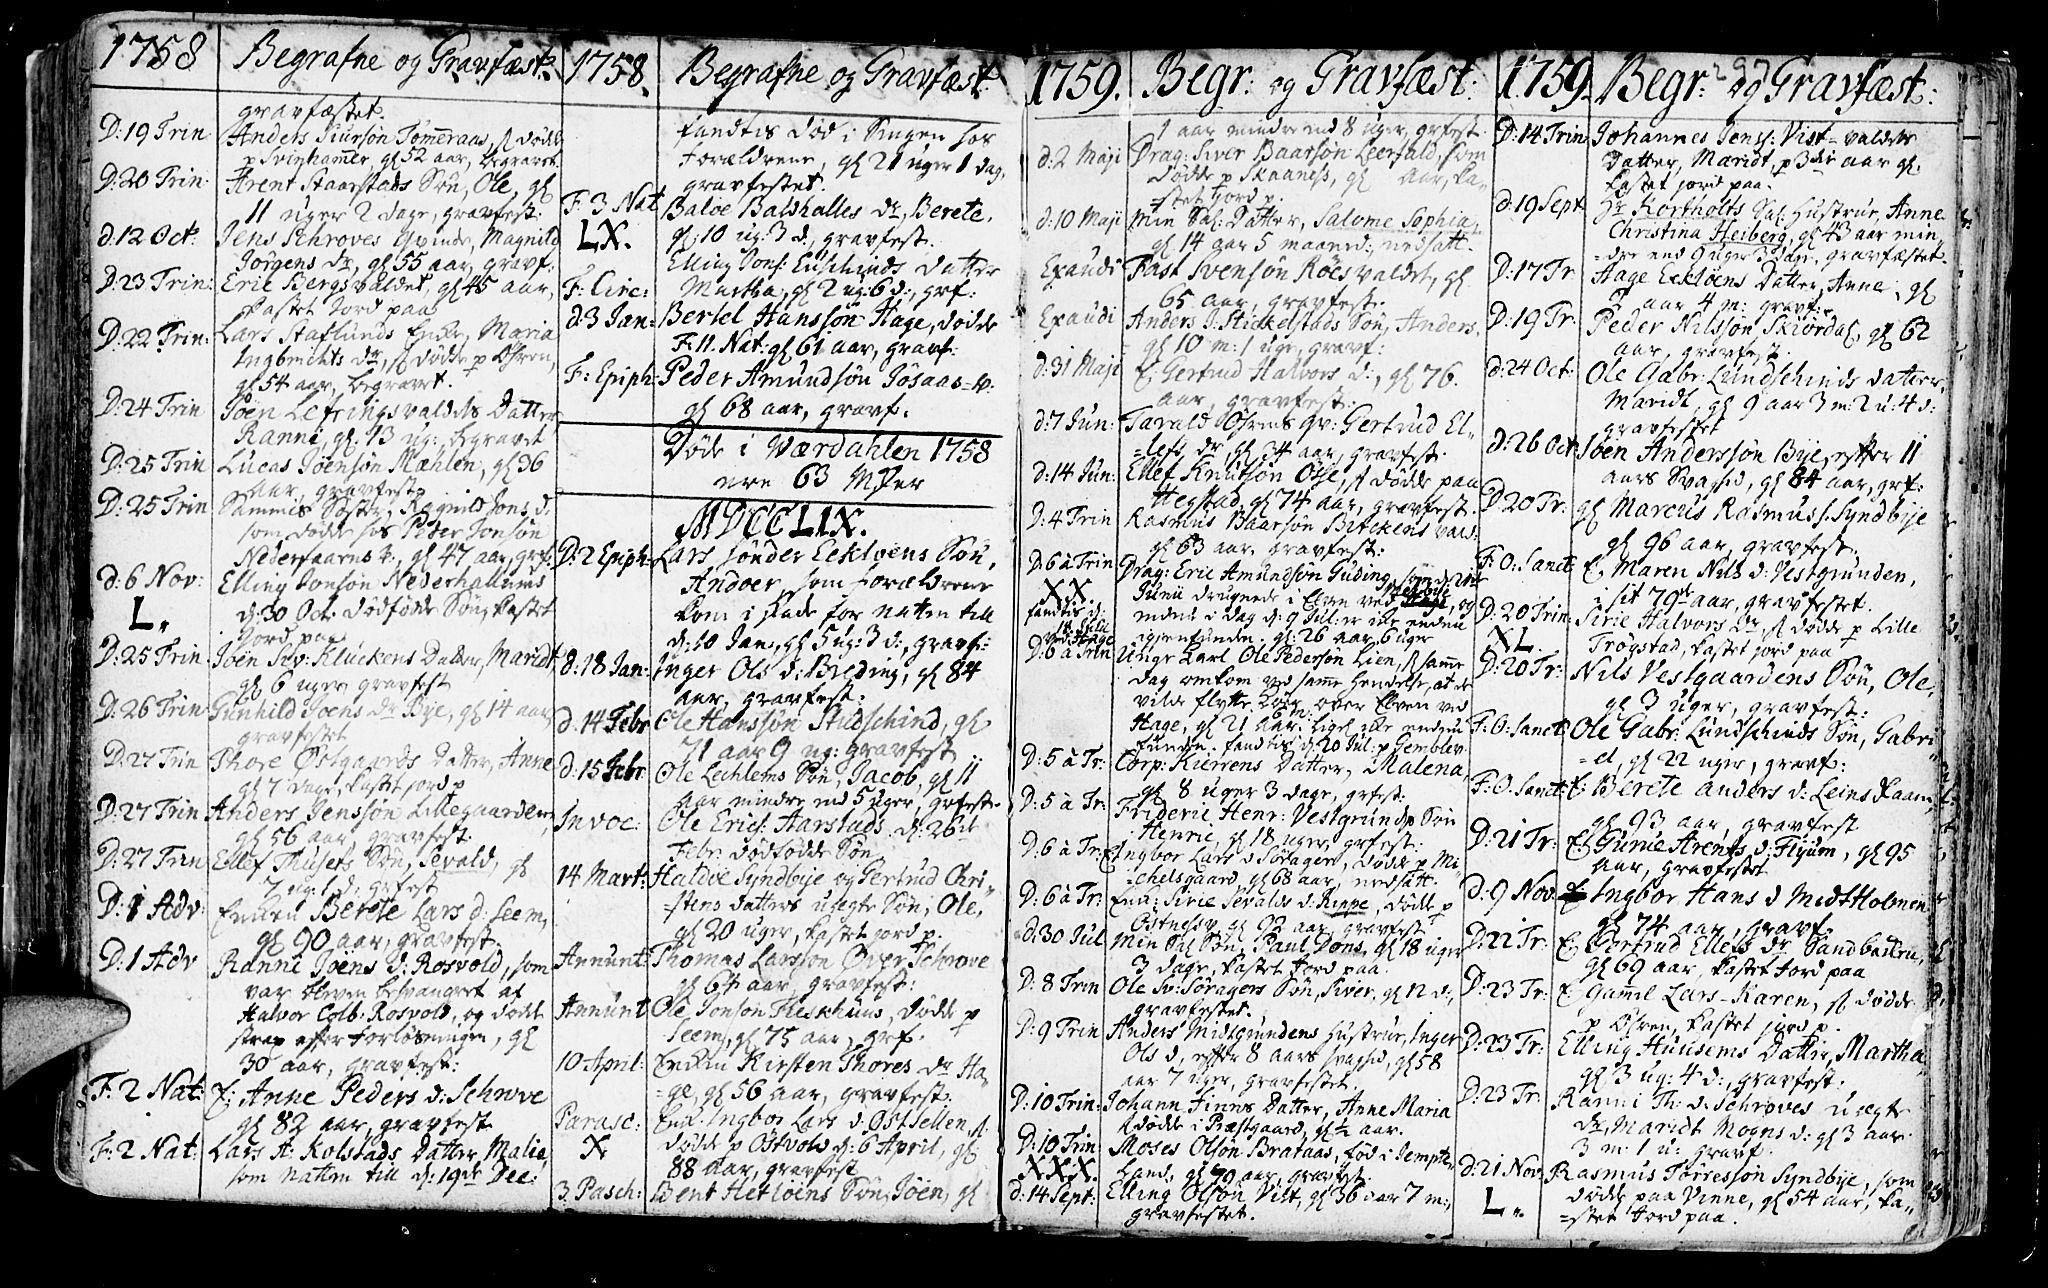 1758 Begrafne og Gravfæst:
gravfæstet.
D: 19 Trin Anders Siursøn Tømeraas, døde
p Svinhamer, gl 52 aar, begravet.
D: 20 Trin: Arent Staarstads Søn, Ole, gl
11 uger 2 dage, gravfest:
d: 12 Oct: Jens Schroves Qvinde, Magnild
Jørgens dr, gl 55 aar, gravf:
D: 23 Trin: Eric Bergsvaldet, gl 45 aar,
kastet Jord paa
D: 22 Trin: Lars Staflunds Enke, Maria
Ingbrichts dr, døde p Øhren,
gl 54 aar, begravet.
D: 24 Trin Joen Lefringsvaldets Datter
Ranni, gl: 13 ug: begravet
D: 25 Trin Lucas Joensøn Mæhlen, gl 36
aar, gravfest
D: 25 Trin Sammes Søster, Ragnild Jons d.
som døde hos Peder Jonsøn
gl 47 aar, grf:
d: 6 Nov: Elling Jonsøn Nederhallums
L. d: 30 Oct. dødfødde Søn, kastet
Jord paa
D: 25 Trin Joen Kluckens Datter, Maridt,
gl 6 uger, gravfest
D: 26 Trin Gunhild Joens dr Bye, gl 14 aar,
gravfestet
D: 27 Trin Thore Østgaards Datter, Anne
gl 7 dage, kastet jord p
D: 27 Trin Anders Jenssøn Lillegaarden,
gl 56 aar gravfest
D: 27 Trin Ellef Thusets Søn, Sevald, gl
7 ug: 1 d: grfest
D: 1 Adv: Enken Berete Lars d: Leem,
gl 90 aar, gravfest:
D: 1 Adv Ranni Joens d: Rosvold, som
var bleven besvangret af
Halvor Colb: Rosvold, og døde
strax efter Forløsningen, gl
30 aar, gravfest:
F: 2 Nat: E: Anne Peders d: Schrove
gl 82 aar, gravfest
F: 2 Nat: Lars A: Kolstads Datter Malie
som natten till d: 19de Dec:
1758. Begrafne og Gravfæst:
fandtis død i Sengen hos
Forældrene, gl 21 uger 1 dag,
gravfestet.
F. 3 Nat Baloe Balshalles dr, Berete,
LX. gl: 10 ug: 3 d:, gravfest.
Elling Jons: Datter
F: Circ: Martha, gl 2 ug: 6 d:, grf:
d: 3 Jan: Bertel Hanssøn Hage, døde
F: 11. Nat: gl 61 aar, gravf:
F: Epiph: Peder Amundsøn Jøsaas=v.
gl 68 aar, gravf.
Døde i Værdahlen 1758
ere 63 Mster
MDCCLIX.
D: 2 Epiph: Lars Sønder Eekloens Søn,
Andoer, som Forældrene
kom i skade for natten till
d: 10 Jan, gl 5 ug: 3 d:, gravf:
d: 18 Jan: Inger Ols d: Breding, gl 84
aar, gravfest:
d. 14 Febr Ole Hanssøn Stubschind, gl
71 aar 9 ug: gravfest
d: 15 Febr Ole Lechlems Søn, Jacob, gl 11
aar mindre end 5 uger, grfest
Invoc: Ole Erics: Aarstads d: 26de
Febr: dødfødde Søn
14 Mart: Haldve Syndbye og Gertrud Chri=
stens Datters uægte Søn, Ole,
gl 20 uger, kastet jord p.
Annunt: Thomas Larssøn Over Schrove
gl 64 aar, gravfest:
Annunt Ole Jonsøn Heskhuus, døde p
Leem, gl 75 aar, grf.
10 April: Enken Kirsten Thores dr Ha,
ge, gl 56 aar, gravfest:
Parasc: Enk: Ingbor Lars d: Østsellen,
X døde p Østvold d: 6 April, gl
88 aar, gravfest
3. Pasch: Bent Hetloens Søn, Joen, gl
1759. Begr: og Gravfæst:
1 aar mindre end 8 uger, grfest.
d: 2 Maji Drag: Siver Baarsøn Leerfald, som
døde p Skaaness, gl aar, ka,
stet Jord p.
d. 10 Maji Min Sal: Datter, Salome Sophia,
gl 14 aar 5 maaned:, nedsatt.
Exaudi Fast Svensøn Røesvaldet, gl
65 aar, gravfest.
Exaudi Anders J: Stickelstads Søn, Anders,
gl 10 m: 1 uge, gravf:
d: 31 Maji E: Gertrud Halvors d:, gl 76.
aar, gravfest:
d: 7 Jun: Tarald Øhrens qv: Gertrud El=
lefs dr, gl 34 aar, gravfest.
d: 14 Jun: Ellef Knutsøn døde paa
Hegstad, gl 74 aar, gravfest.
D: 4 Trin Rasmus Baarsøn Birckens vald:
gl 63 aar, gravfest:
D: 6 à Trin Drag: Eric Amundsøn Guding,
XX. Junii druknede i Elven ved Hage, og
fandtis d: endnu i dag d: 9 Jul: er icke endnu
18 Julii igenfunden. gl: 26 aar, 6 uger
ved Hage
D: 6 à Trin Unge Karl Ole Pedersøn Lien, samme
dag omkom ved samme hendelse, at de
vilde flytte over Elven ved
Hage, gl 21 aar: ligel: icke endnu
funden. fandtis d 20 Jul. p
D: 5 à Tr: Corp: Kierrens Datter, Malena,
gl 8 uger 3 dage, grfest:
D: 5 à Tr: Frideric Henr: Vestgrunds Søn
Henric, gl 18 uger, grfest:
D: 6 à Tr: E Ingbor Lars d Sørager, døde p Mi,
chelsgaard, gl 68 aar, nedsatt.
D: 6 à Tr: Enk: Sirie Sevalds d: Rippe, døde p
Østnessv, gl 92 aar, gravfest
d: 30 Jul Min Sal Søn, Paul Dons, gl 18 uger
3 dage, kastet Jord paa.
D: 8 Trin Ole Sv: Søragers Søn, Siver, gl 12 d:,
gravfestet.
D: 9 Trin Anders Midtgrundens Hustrue, Inger
Ols d, efter 8 aars svaghd, gl 58
aar 7 uger, gravfestet.
D: 10 Trin: Johann Finns Datter, Anne Maria
døde i Præstgaard, gl ½ aar.
D: 10 Trin Moses Olsøn Brataas, fød i Jempte,
XXX. Land, gl 70 aar, gravfst.
d: 14 Sept: Elling Olsøn Vist, gl 36 aar 7 m:,
gravfestet.
1759. Begr: og Gravfæst:
297
D: 14 Trin Johannes Jens: Vist=valdets
Datter, Maridt, p 3die aar gl.
kastet jord paa.
d: 19 Sept Hr Kortholts Sal: Hustrue, Anne
Christina Heiberg, gl 43 aar min,
dre end 9 uger 3 dage, gravfæstet.
D: 17 Tr Hage Eekloens Datter, Anne, gl
aar 4 m: gravf:
D: 19 Tr: Peder Nilssøn Skiørdal, gl 62
aar, gravfest.
d: 24 Oct: Ole Gabr: Lundschinds datter,
Maridt, gl 9 aar 3 m: 2 u: 4 d:
gravfestet
d: 26 Oct: Joen Anderssøn Bye, efter 11
aars Svaghd, gl 84 aar, grf:
D: 20 Tr: gl Marcus Rasmuss. Syndbye
gl 96 aar, gravfest.
F: O: Sanct: E. Maren Nils d: Vestgrunden,
i sit 79de aar, gravfestet.
D: 20 Trin: Sirie Halvors dr, døde p Lille
XL Trøystad, kastet jord paa
D: 20 Tr: Nils Vestgaardens Søn, Ole,
gl 3 uger, gravfest:
F: O: Sanct: Ole Gabr: Lundschinds Søn, Gabri,
el, gl 22 uger, gravf:
F: O: Sanct: E: Berete Anders d: Leinskaam,
gl 93 aar, gravfest
D: 21 Tr: E: Gunie Arents d: Flyum, gl 95
aar, gravfestet
d: 9 Nov: E Ingbor Hans d Midt Holmen
gl 74 aar, gravf.
D: 22 Tr: E: Gertrud Ellefs dr Sandbakken,
gl 69 aar, kastet Jord paa
D: 23 Tr: E: Gammel Lars-Karen, døde
p Øhren, kastet jord p.
D: 23 Tr: Elling Huusems Datter, Martha
gl 3 ug: 4 d:, gravfest.
D: 23 Tr: Ranni Th: d: Schroves uægte
dr, Maridt Mogns d: gl 3 aar
3 m: 1 u: gravf.
d: 21 Nov Rasmus Torressøn Syndbye, som
L. døde paa Vinne, gl 54 aar, ka,
stet Jord paa.